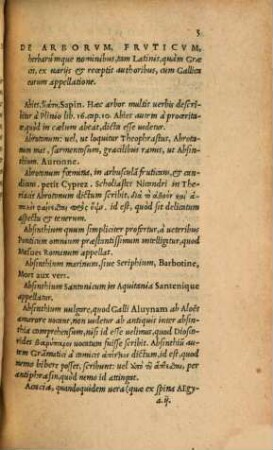 5
DE ARBORVM, FRVTICVM,
herbarúmque nominibus, tam Latinis, quàm Græ-
cis, ex variis et receptis authoribus, cum Gallica
eorum appellatione.
Abies, ἐλάτη, Sapin. Hæc arbor multis verbis descri-
bitur à Plinio lib. 16. cap. 10. Abies autem à proceritate
quòd in cælum abeat, dicta esse videtur.
Abrotonum: vel, ut loquitur Theophrastus, Abroto-
num mas, sarmentosum, gracilibus ramis, ut Absin-
thium. Auronne.
Abrotonum fœmina, in arbusculā fruticans, et can-
dicans, petit Cyprez. Scholiastes Nicandri in The-
riacis Abrotonum dictum scribit, διὰ τὸ
id est, quòd sit delicatum
aspectu et tenerum.
Absinthium quum simpliciter profertur, à veteribus
Ponticum omnium præstantissimum intelligitur, quod
Mesues Romanum appellat.
Absinthium marinum, siue Seriphium, Barbotine,
Mort aux vers.
Absinthium Santonicum in Aquitania Santonique
appellatur.
Absinthium vulgare, quod Galli Aluynam ab Aloës
amarore vocant, non videtur ab antiquis inter absin-
thia comprehensum, nisi id esse velimus, quod Diosco-
rides Βαρύπικρον vocantum fuisse scribit. Absinthiū
autem Grāmatici à comicis ἀπίνθιον dictum, id est, quod
nemo bibere posset, scribunt: vel per
antiphrasin, quòd nemo id attingat.
Acacia, quandoquidem vera (quæ ex spina AEgy-
a.ij.